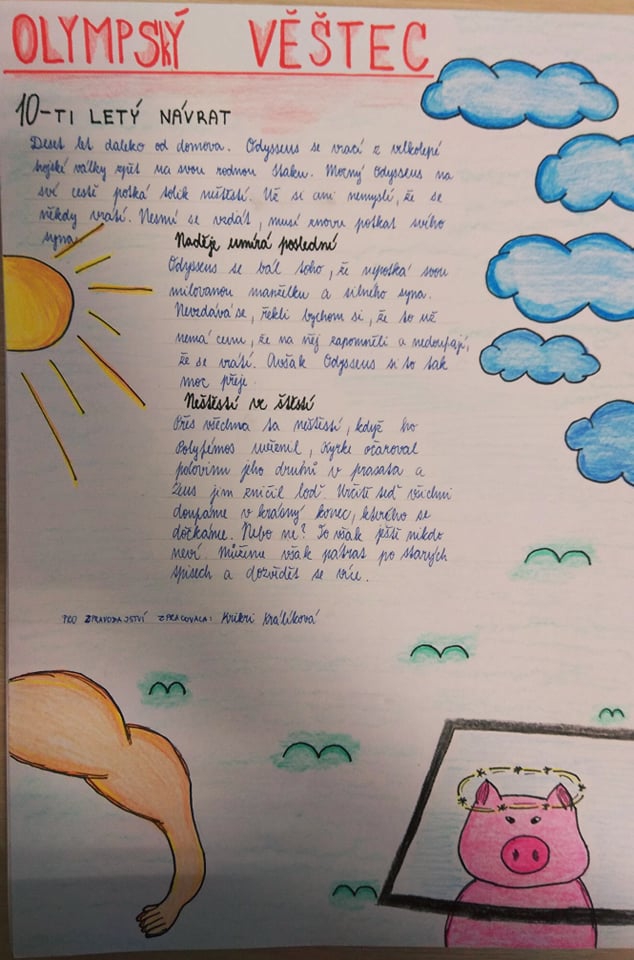 OLYMPSKÝ VĚŠTEC
10-TI LETÝ NÁVRAT
Deset let daleko od domova. Odysseus se vrací z velkolepé
trojské války zpět na svou rodnou Ithaku. Mocný Odysseus na
své cestě potká tolik neštěstí. Už si ani nemyslí, že se
někdy vrátí. Nesmí se vzdát, musí znovu potkat svého
syna.
Naděje umírá poslední
Odysseus se bál toho, že nepotká svou
milovanou manželku a silného syna.
Nevzdává se, řekli bychom si, že to už
nemá cenu, že na něj zapomněli a nedoufají,
že se vrátí. Avšak Odysseus si to tak
moc přeje.
Neštěstí ve štěstí
Přes všechna ta neštěstí, když ho
Polyfémos uvěznil, Kyrké očaroval
polovinu jeho druhů v prasata a
Zeus jim zničil loď. Určitě teď všichni
doufáme v krásný konec, kterého se
dočkáme. Nebo ne? To však ještě nikdo
neví. Můžeme však pátrat po starých
spisech a dozvědět se více.
PRO ZPRAVODAJSTVÍ ZPRACOVALA: Krikri Králíková